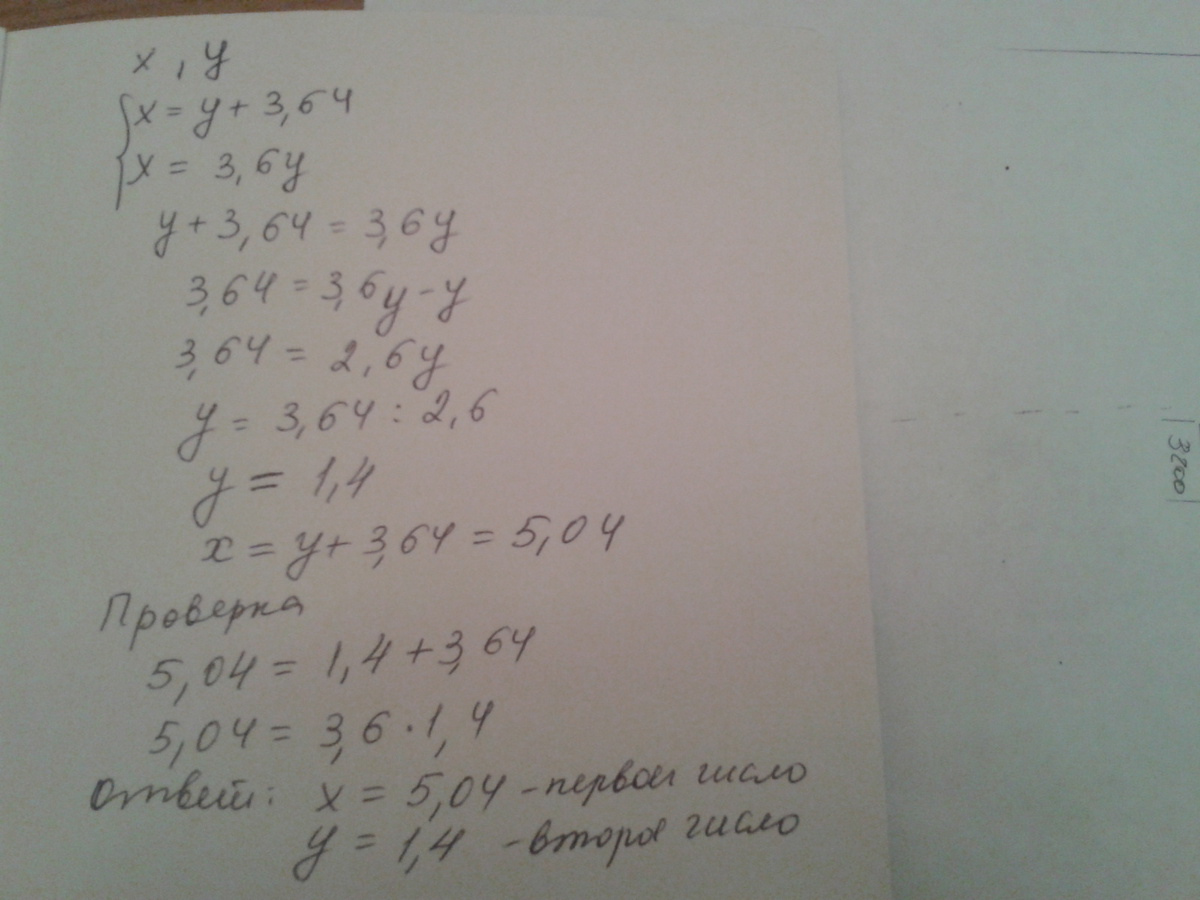 x , y
x = y + 3,64
x = 3,6y
y + 3,64 = 3,6y
3,64 = 3,6y - y
3,64 = 2,6y
y = 3,64 : 2,6
y = 1,4
x = y + 3,64 = 5,04
Проверка
5,04 = 1,4 + 3,64
5,04 = 3,6 · 1,4
Ответ: x = 5,04 - первое число
y = 1,4 - второе число
3200